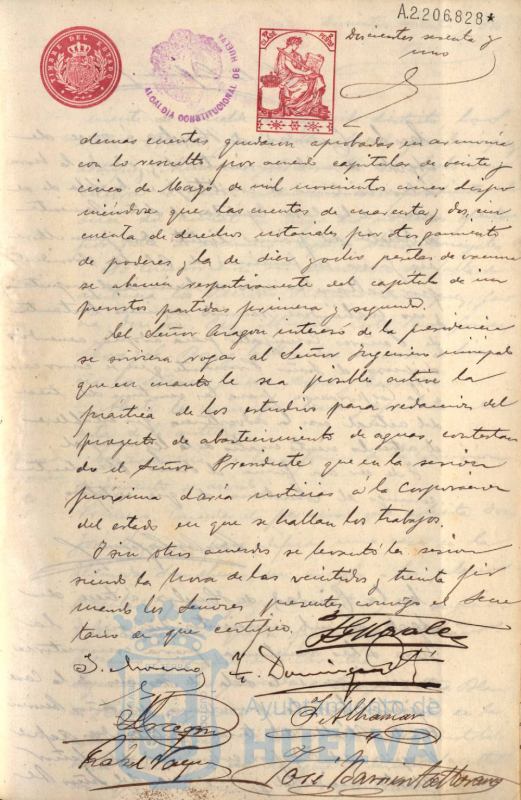 A.2.206.828*
Doscientos sesenta y
uno
TIMBRE DEL ESTADO
ALCALDÍA CONSTITUCIONAL DE HUELVA
demas cuentas quedaron aprobadas en armonia
con lo resuelto por acuerdo capitular de veinte y
cinco de Mayo de mil novecientos cinco dispo
niéndose que las cuentas de cuarenta y dos, cin
cuenta de derechos notariales por otorgamiento
de poderes y la de diez y ocho pesetas de
se abonen respectivamente del capitulo de im
previstos partidas primera y segunda.
El Señor Aragon interesó de la presidencia
se sirviera rogar al Señor Ingeniero municipal
que en cuanto le sea posible active la
práctica de los estudios para redaccion del
proyecto de abastecimiento de aguas, contestan
do el Señor Presidente que en la sesion
próxima daria noticias á la Corporacion
del estado en que se hallan los trabajos.
I sin otros acuerdos se levantó la sesion
siendo la hora de las veintidos y treinta fir
mando los Señores presentes conmigo el Secre
tario de que certifico.
J. Moreno F. Dominguez
Aragon J. Alhamar
Rafel Vazquez José Barrientos
Ayuntamiento de
HUELVA